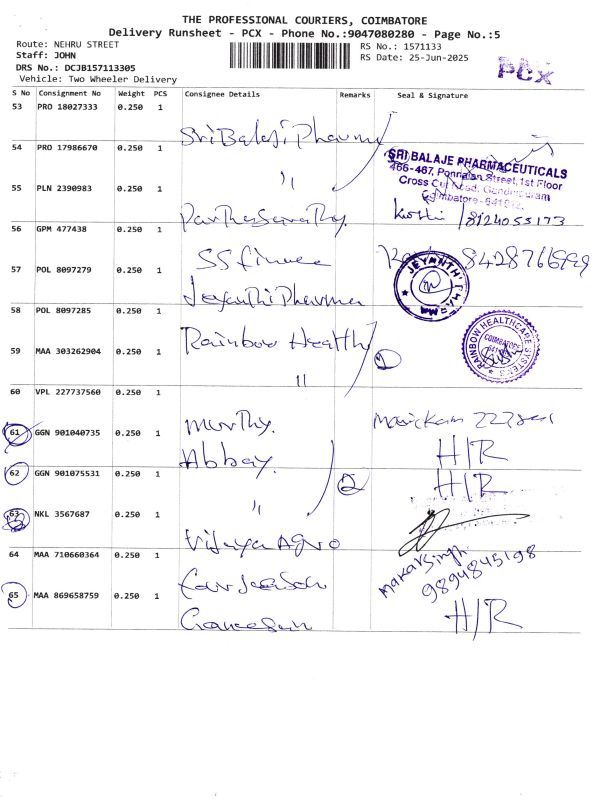 THE PROFESSIONAL COURIERS, COIMBATORE
Delivery Runsheet - PCX - Phone No.:9047080280 - Page No.:5
Route: NEHRU STREET
RS No.: 1571133
Staff: JOHN
RS Date: 25-Jun-2025
PCX
DRS No.: DCJB157113305
Vehicle: Two Wheeler Delivery
S No Consignment No Weight PCS Consignee Details Remarks Seal & Signature
53 PRO 18027333 0.250 1
Sri Balaji Pharma
54 PRO 17986670 0.250 1
SRI BALAJE PHARMACEUTICALS
466-467, Ponnaian Street, 1st Floor
Cross Cut Road, Gandhipuram
Coimbatore - 641012.
"
55 PLN 2390983 0.250 1
Parthasarathy. 8124055173
56 GPM 477438 0.250 1
SS finance 8428766999
57 POL 8097279 0.250 1
JEYANTHI PHARMA
Jeyanthi Pharma
58 POL 8097285 0.250 1
Rainbow Health 2
RAINBOW HEALTHCARE SYSTEMS
COIMBATORE
59 MAA 303262904 0.250 1
"
60 VPL 227737560 0.250 1
Murthy.
61 GGN 901040735 0.250 1
Abbay. H/R
62 GGN 901075531 0.250 1
" 2 H/R
63 NKL 3567687 0.250 1
Vijaya Agro
64 MAA 710660364 0.250 1
9894845198
65 MAA 869658759 0.250 1
Ganesan H/R